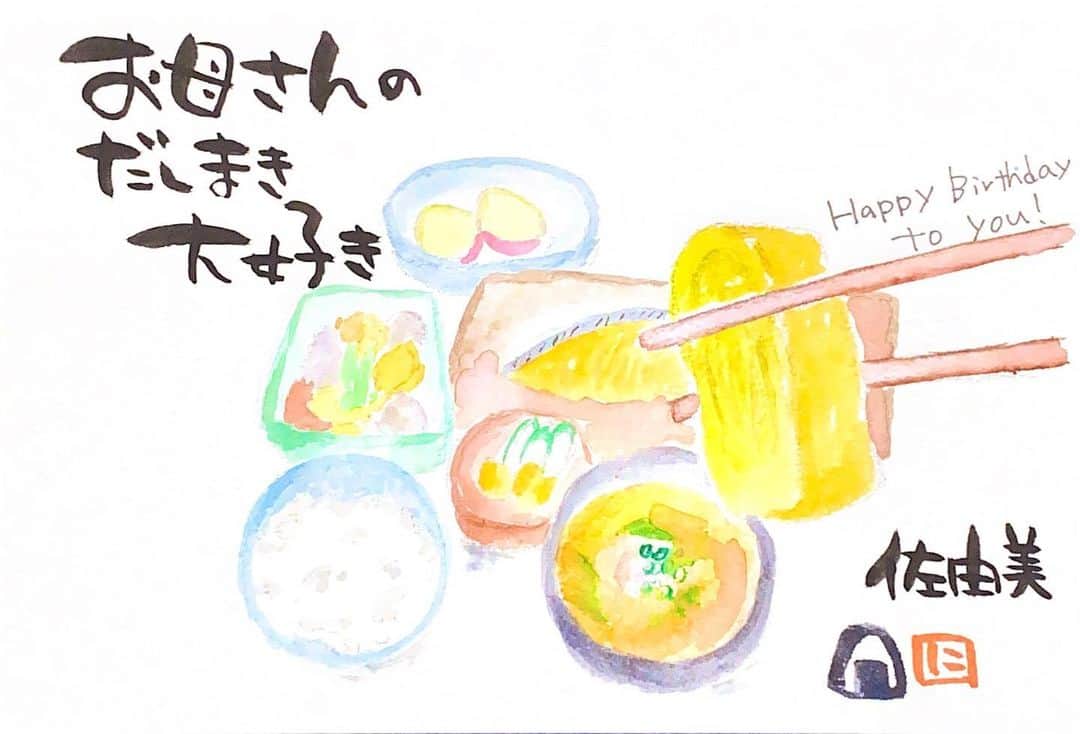 お母さんの
だしまき
大好き
Happy Birthday
to you!
佐由美
に